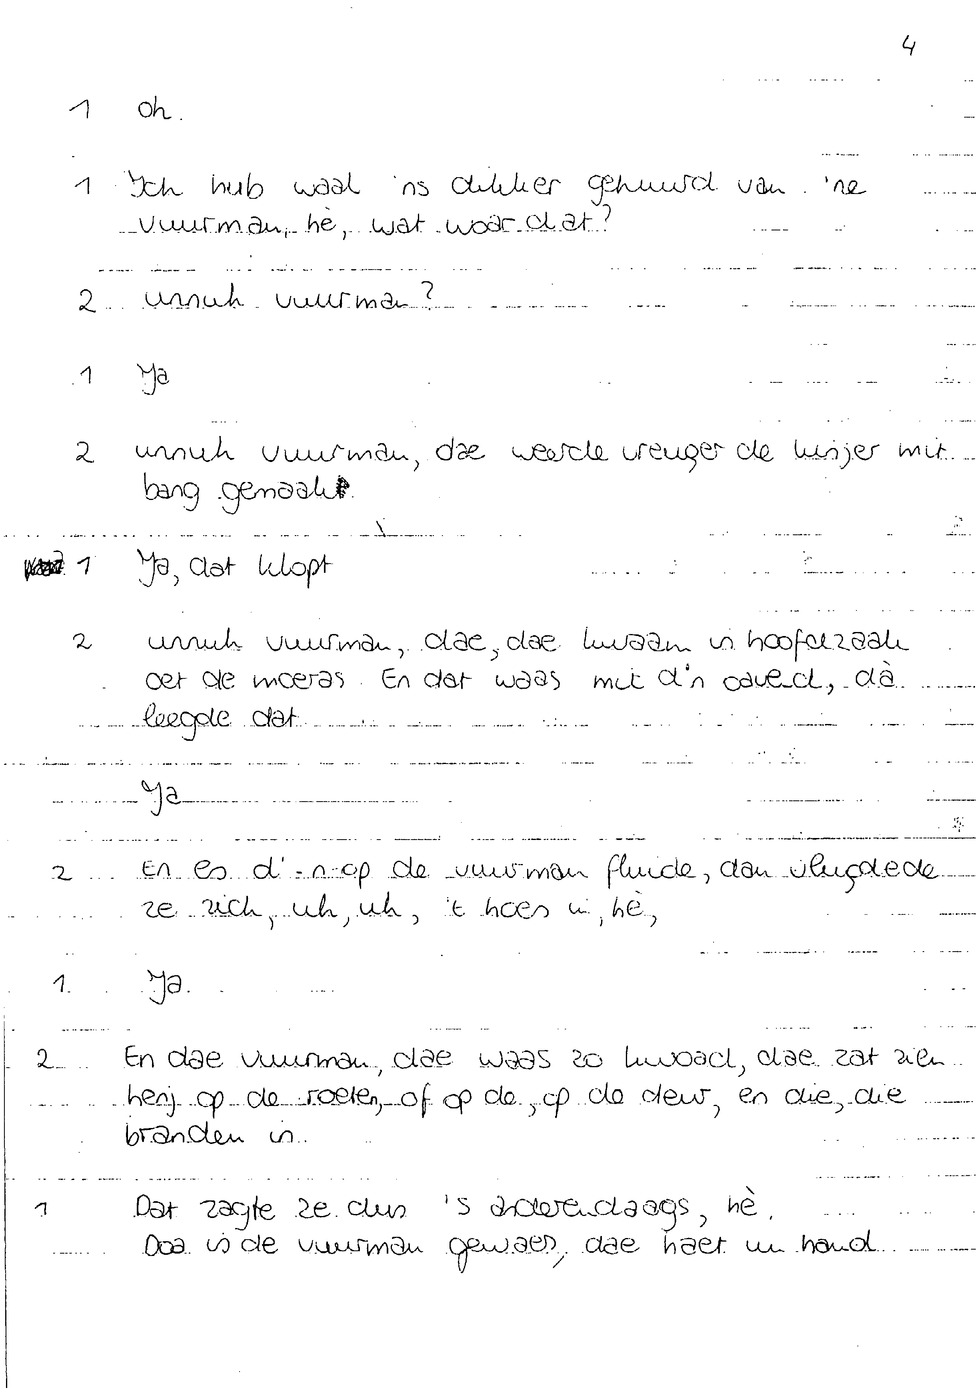 4
1 Oh.
1 Ich hub waal 'ns dikker gehuurd van 'ne
vuurman, hè, wat woar dat?
2 unnuh vuurman?
1 Ja
2 unnuh vuurman, dae weerde vreuger de kinjer mit
bang gemaakt.
1 Ja, dat klopt
2 unnuh vuurman, dae, dae kwaam in hoofdzaak
oet de moeras. En dat waas mit d'n oavend, dà
leegde dat
Ja
2 En es d'-n-op de vuurman fluide, dan vlugdede
ze zich, uh, uh, 't hoes in, hè,
1. Ja.
2 En dae vuurman, dae waas zo kwoad, dae zat zien
henj op de roeten, of op de, op de deur, en die, die
branden in.
1 Dat zagte ze dus 's anderendaags, hè.
Doa is de vuurman gewaes, dae haet un hand